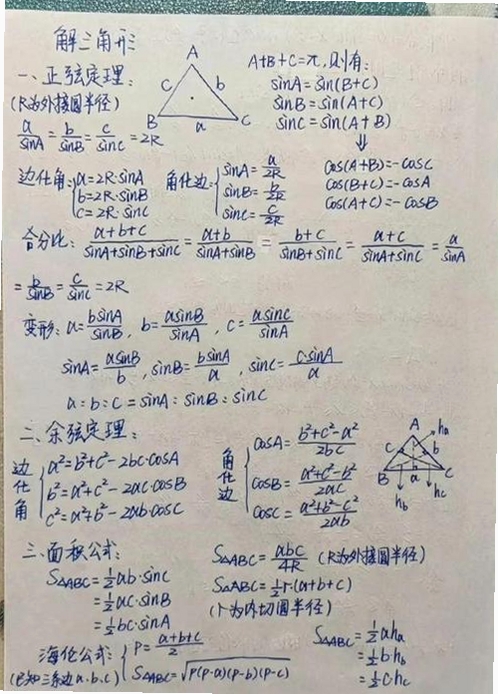 解三角形
一、正弦定理：
(R为外接圆半径)
a/sinA = b/sinB = c/sinC = 2R
A
c b
B a C
A+B+C=π,则有：
sinA=sin(B+C)
sinB=sin(A+C)
sinC=sin(A+B)
⇓
cos(A+B)=-cosC
cos(B+C)=-cosA
cos(A+C)=-cosB
边化角：{a=2R·sinA
b=2R·sinB
c=2R·sinC
角化边：{sinA=a/2R
sinB=b/2R
sinC=c/2R
合分比：(a+b+c)/(sinA+sinB+sinC) = (a+b)/(sinA+sinB) = (b+c)/(sinB+sinC) = (a+c)/(sinA+sinC) = a/sinA
= b/sinB = c/sinC = 2R
变形：a=bsinA/sinB, b=asinB/sinA, c=asinC/sinA
sinA=asinB/b, sinB=bsinA/a, sinC=c·sinA/a
a:b:c=sinA:sinB:sinC
二、余弦定理：
边化角{a²=b²+c²-2bc·cosA
b²=a²+c²-2ac·cosB
c²=a²+b²-2ab·cosC
角化边{cosA=(b²+c²-a²)/2bc
cosB=(a²+c²-b²)/2ac
cosC=(a²+b²-c²)/2ab
A ha
c b
B a C
hb hc
三、面积公式：
S△ABC=½ab·sinC
=½ac·sinB
=½bc·sinA
S△ABC=abc/4R (R为外接圆半径)
S△ABC=½r·(a+b+c)
(r为内切圆半径)
海伦公式：{P=(a+b+c)/2
(已知三条边a.b.c) S△ABC=√(P(P-a)(P-b)(P-c))
S△ABC=½aha
=½b·hb
=½chc